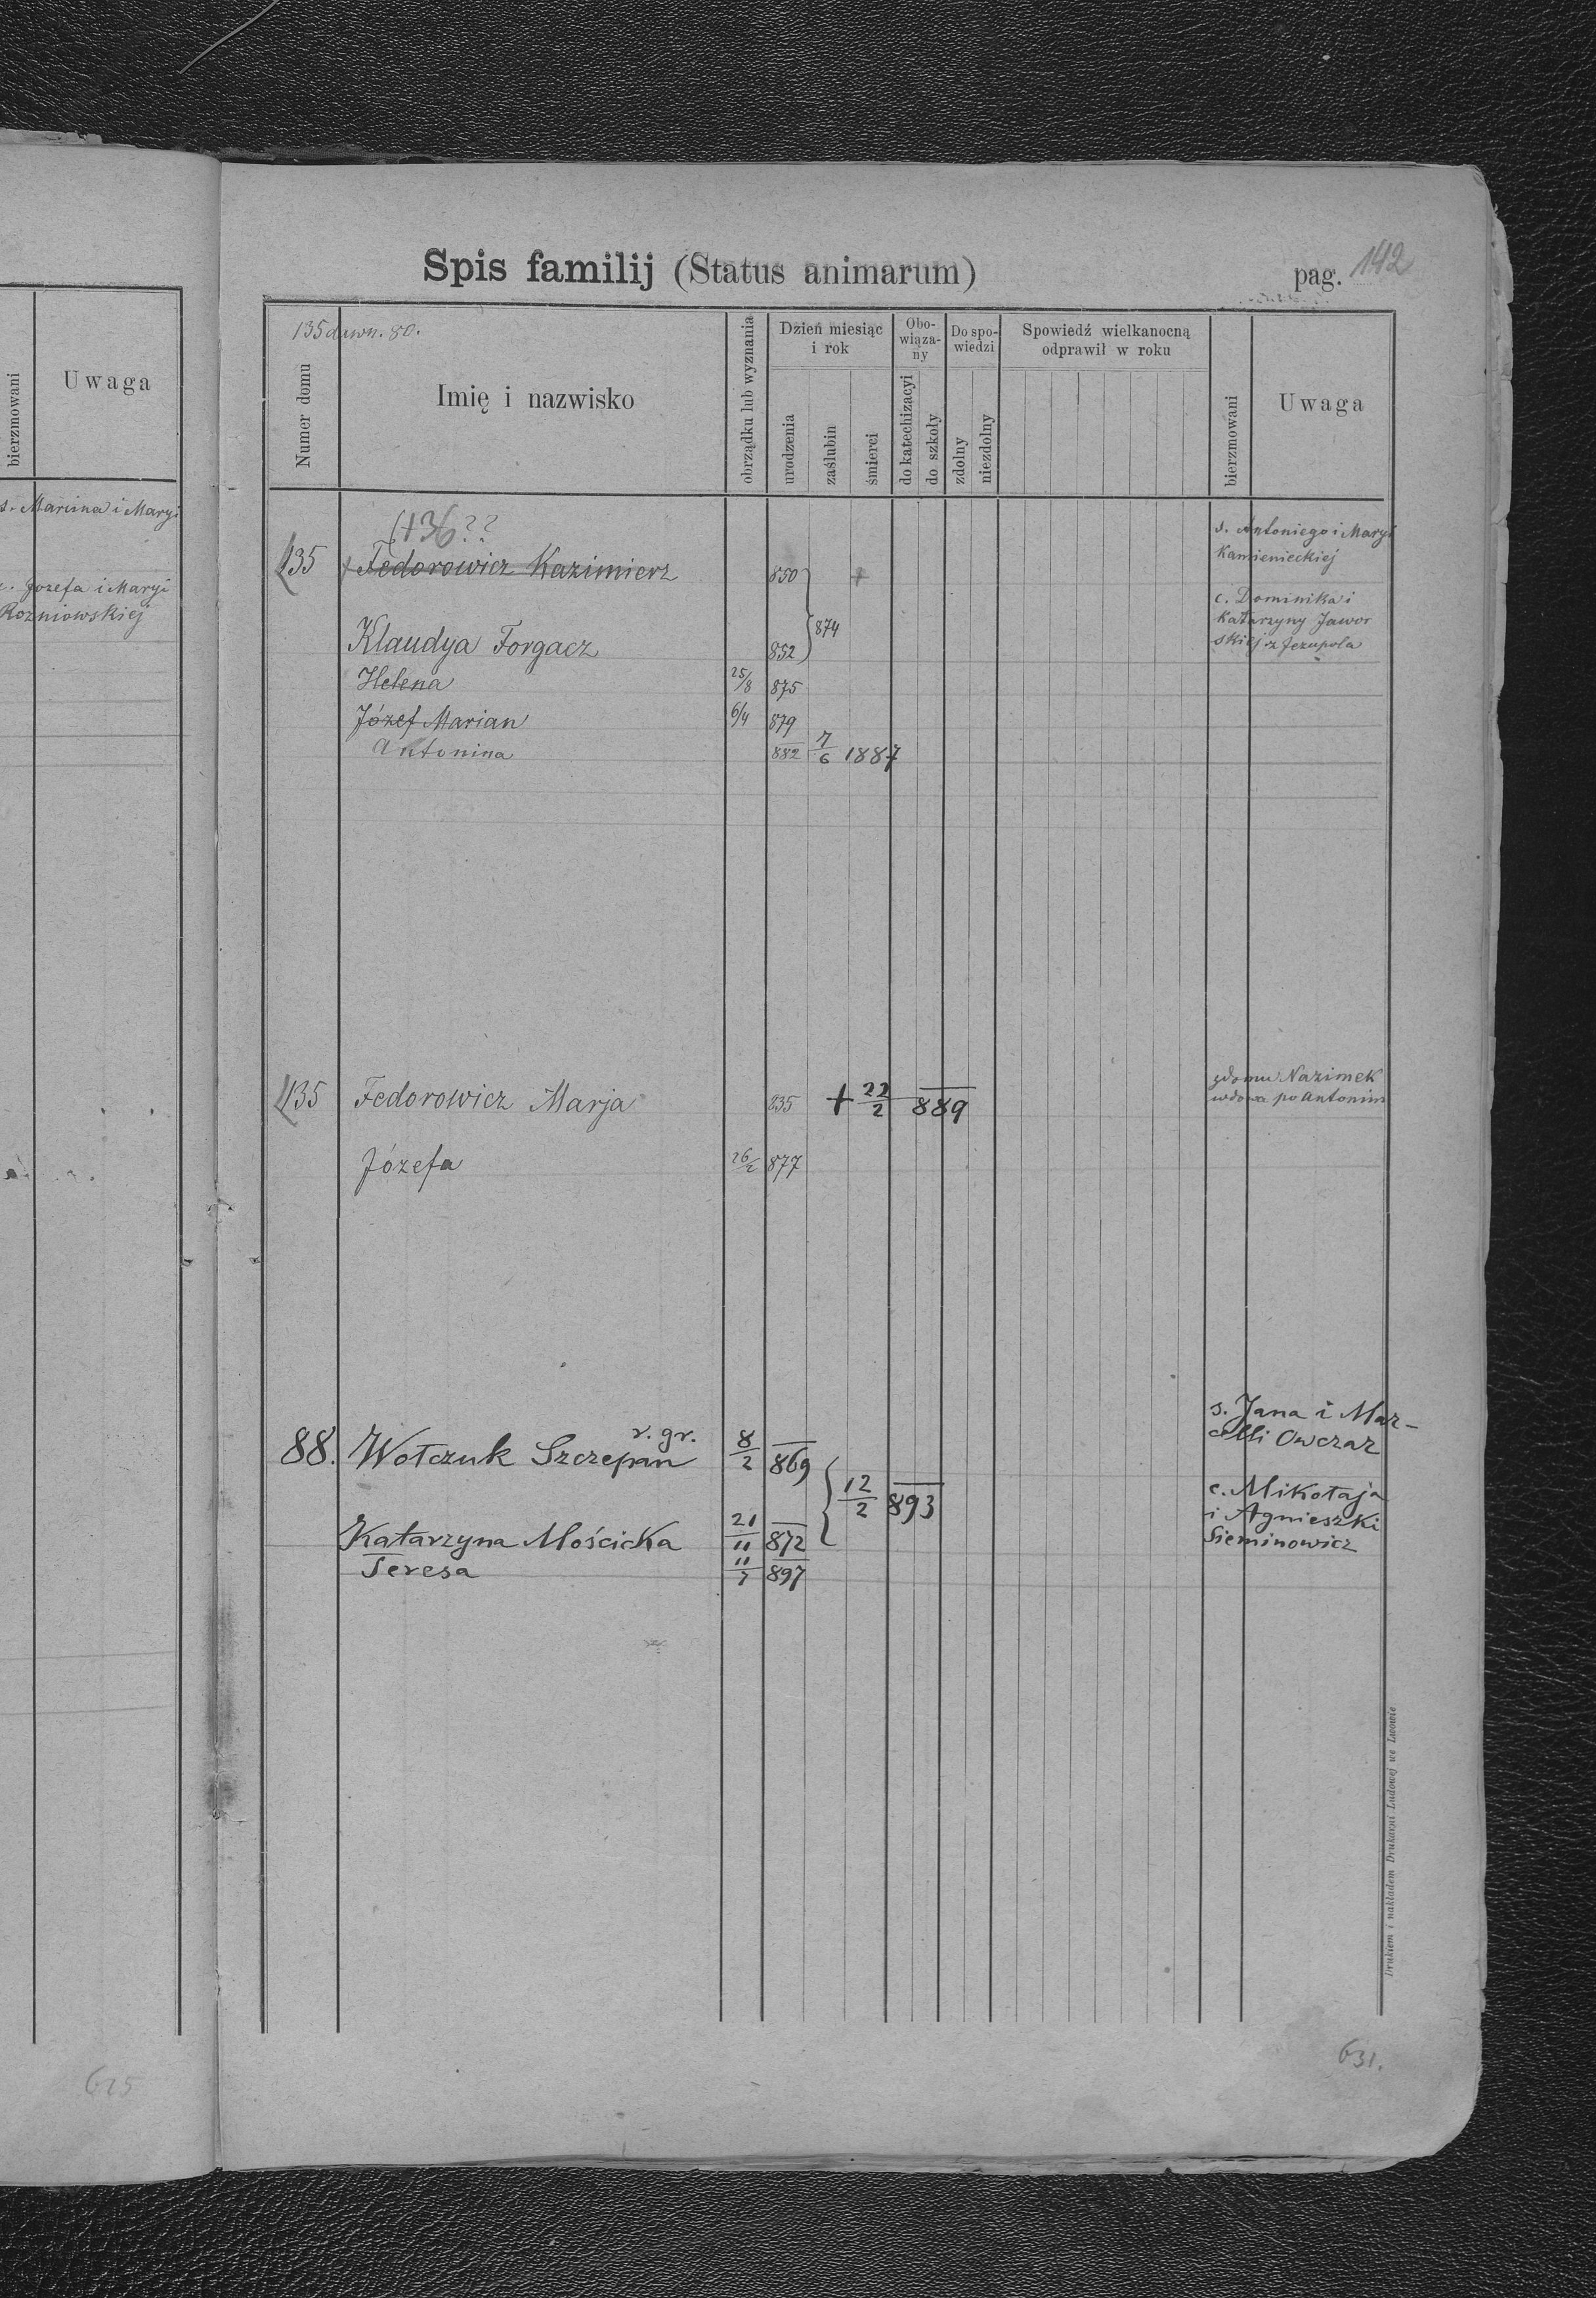 Uwaga
bierzmowani
s. Marcina i Maryi
c. Józefa i Maryi
Rozniowskiej
625
Spis familij (Status animarum)
pag. 142
135 dawn. 80.
Numer domu
Imię i nazwisko
obrządku lub wyznania
Dzień miesiąc
i rok
urodzenia
zaślubin
śmierci
Obo-
wiąza-
ny
do katechizacyi
do szkoły
Do spo-
wiedzi
zdolny
niezdolny
Spowiedź wielkanocną
odprawił w roku
bierzmowani
Uwaga
136??
135 † Fedorowicz Kazimierz 850 † s. Antoniego i Maryi
Kamienieckiej
874
Klaudya Forgacz 852 c. Dominika i
Katarzyny Jawor
skiej z Jezupola
Helena 25/8 875
Józef Marian 6/4 879
Antonina 882 7/6 1887
135 Fedorowicz Marja 835 + 22/2 889 z domu Nazimek
wdowa po Antonim
Józefa 26/2 877
r. gr.
88. Wołczuk Szczepan 8/2 869 s. Jana i Mar-
celli Owczar
12/2 893
Katarzyna Mościcka 21/11 872 c. Mikołaja
i Agnieszki
Sieminowicz
Teresa 11/7 897
Drukiem i nakładem Drukarni Ludowej we Lwowie
631.